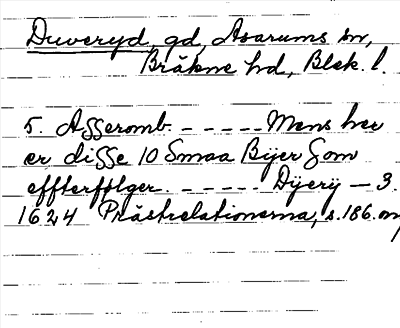 Duveryd gd, Asarums sn,
Bräkne hd, Blek. l.
5. Asseromb. - - - - - Mens her
er disse 10 Smaa Bÿer Som
effterfølger. - - - - - - Dÿerÿ - 3.
1624 Prästrelationerna, s. 186.